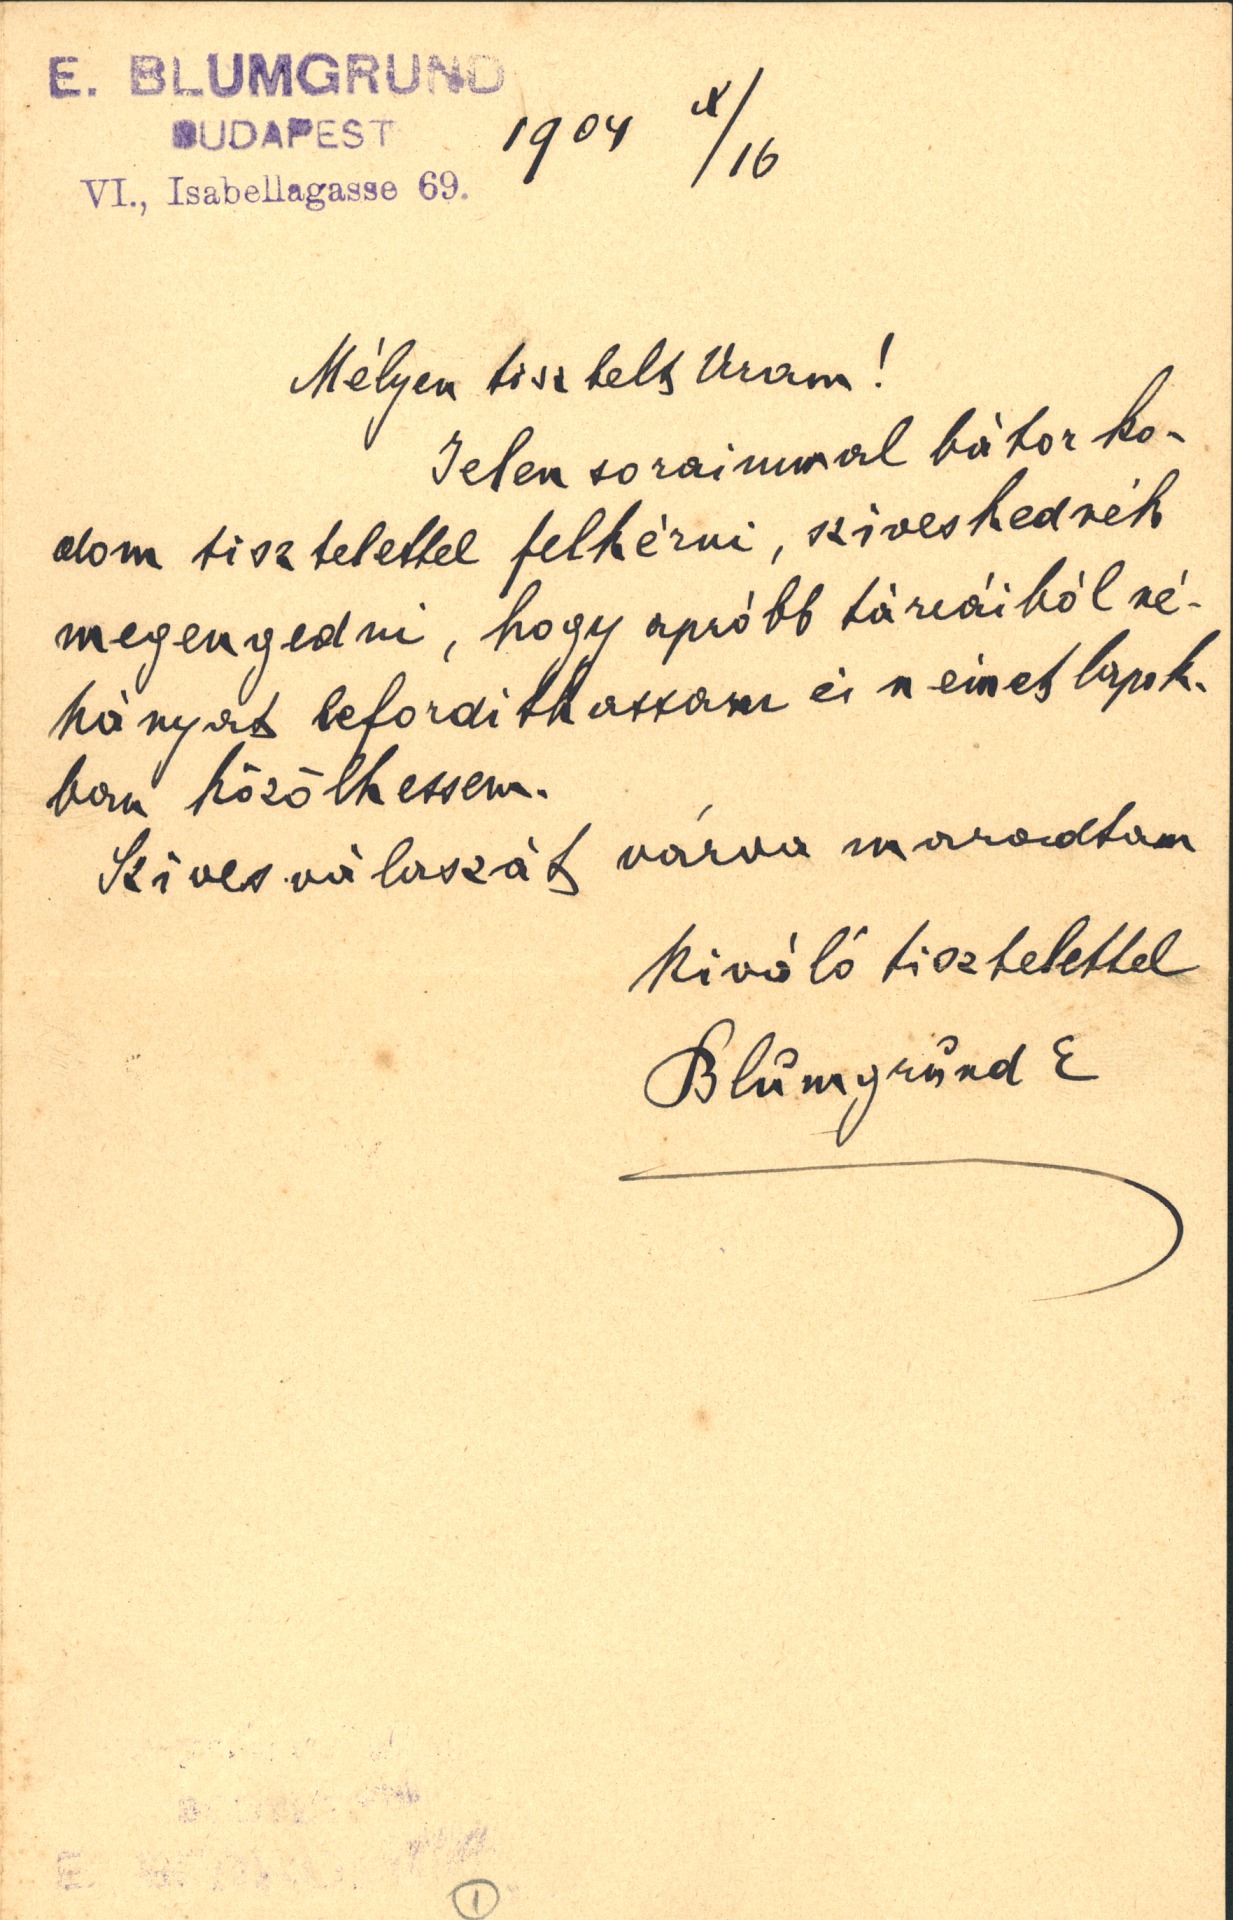 E. BLUMGRUND
BUDAPEST
VI., Isabellagasse 69.
1904 X/16
Mélyen tisztelt Uram!
Jelen soraimmal bátorko-
dom tisztelettel felkérni, sziveskednék
megengedni, hogy apróbb tárcáiból né-
hányat leforditkassam és német lapok-
ban közölhessem.
Szives válaszát várva maradtam
Kiváló tisztelettel
Blumgrund E
1